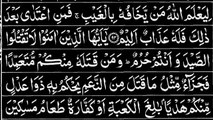 لِيَعْلَمَ اللّٰهُ مَنْ يَّخَافُهٗ بِالْغَيْبِ ۚ فَمَنِ اعْتَدٰى بَعْدَ
ذٰلِكَ فَلَهٗ عَذَابٌ اَلِيْمٌ ۝ يٰۤاَيُّهَا الَّذِيْنَ اٰمَنُوْا لَا تَقْتُلُوا
الصَّيْدَ وَاَنْتُمْ حُرُمٌ ؕ وَمَنْ قَتَلَهٗ مِنْكُمْ مُّتَعَمِّدًا
فَجَزَآءٌ مِّثْلُ مَا قَتَلَ مِنَ النَّعَمِ يَحْكُمُ بِهٖ ذَوَا عَدْلٍ
مِّنْكُمْ هَدْيًۢا بٰلِغَ الْكَعْبَةِ اَوْ كَفَّارَةٌ طَعَامُ مَسٰكِيْنَ